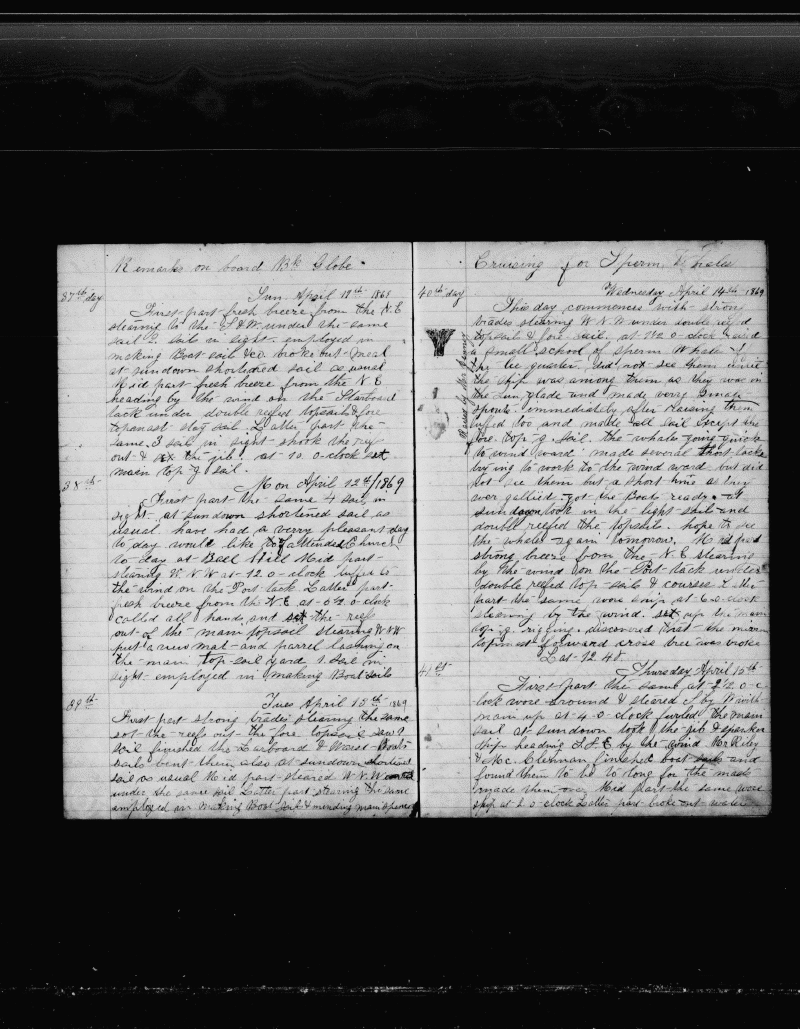 Remarks on board Bk Globe
37th day Sun April 11th 1869
First part fresh breeze from the N.E
stearing to the S.&W. under the same
sail 2 sail in sight. employed in
making Boat sail &c. broke out meat
at sundown shortened sail as usual
Mid part fresh breeze from the N E
heading by the wind on the Starboard
tack under double reefed topsails & fore
topmast stay sail Latter part the
same. 3 sail in sight shook the reef
out & set the jib. at 10 o-clock set
main top g sail.
38th Mon April 12th/1869
First part the same 4 sail in
sight. at sundown shortened sail as
usual. have had a verry pleasant day
to day would like to of attended Church
to day at Ball Hill Mid part
stearing W.N.W at 12 o-clock luffed to
the wind on the Port tack Latter part
fresh breeze from the N.E at 5½ o-clock
called all hands and set the reef
out of the main topsail stearing W.N.W
put a new mat and parrel lashing on
the main top-sail yard 1 sail in
sight employed in making Boat sails
39th Tues April 13th 1869
First part strong trades stearing the same
sot the reefs out the fore topsail saw 1
sail finished the Larboard & Waist Boats
sails bent them also at sundown shortened
sail as usual Mid part steared W.N.W
under the same sail Latter part stearing the same
employed in making Boat sail & mending main spencer
Cruising for Sperm Whales
40th day Wednesday April 14th 1869
This day commences with strong
trades stearing W N.W under double reefed
topsails & fore sail. at 1½ o-clock raised
a small school of sperm Whales off
the lee quarter, did not see them until
the ship was among them as they was in
the sun glade and made verry small
spouts immediately after raising them
luffed too and made all sail except the
fore top g sail. the whales going quick
to wind ward made several short tacks
trying to work to the wind ward but did
not see them but a short time as they
wer gallied got the Boats ready at
sundown took in the light sails and
double reefed the topsails. hope to see
the whales again tomorrow. Mid part
strong breeze from the N.E stearing
by the wind on the Port tack under
double reefed top-sails & courses Latter
part the same wore ship at 6 o-clock
stearing by the wind. set up the main
top g rigging. discovered that the mizen
topmast forward cross tree was broke
Lat 12.48
41st Thursday April 15th
First part the same at 2½ o-c-
lock wore around & steared S by W with
main up at 4 o-clock furled the main
sail at sundown took the jib & spanker
ship heading S.S.E by the wind Mr Riley
& Mc. Clennan finished boat sails and
found them to be to long for the masts
made them over Mid part the same wore
ship at 2 o-clock Latter part broke out water